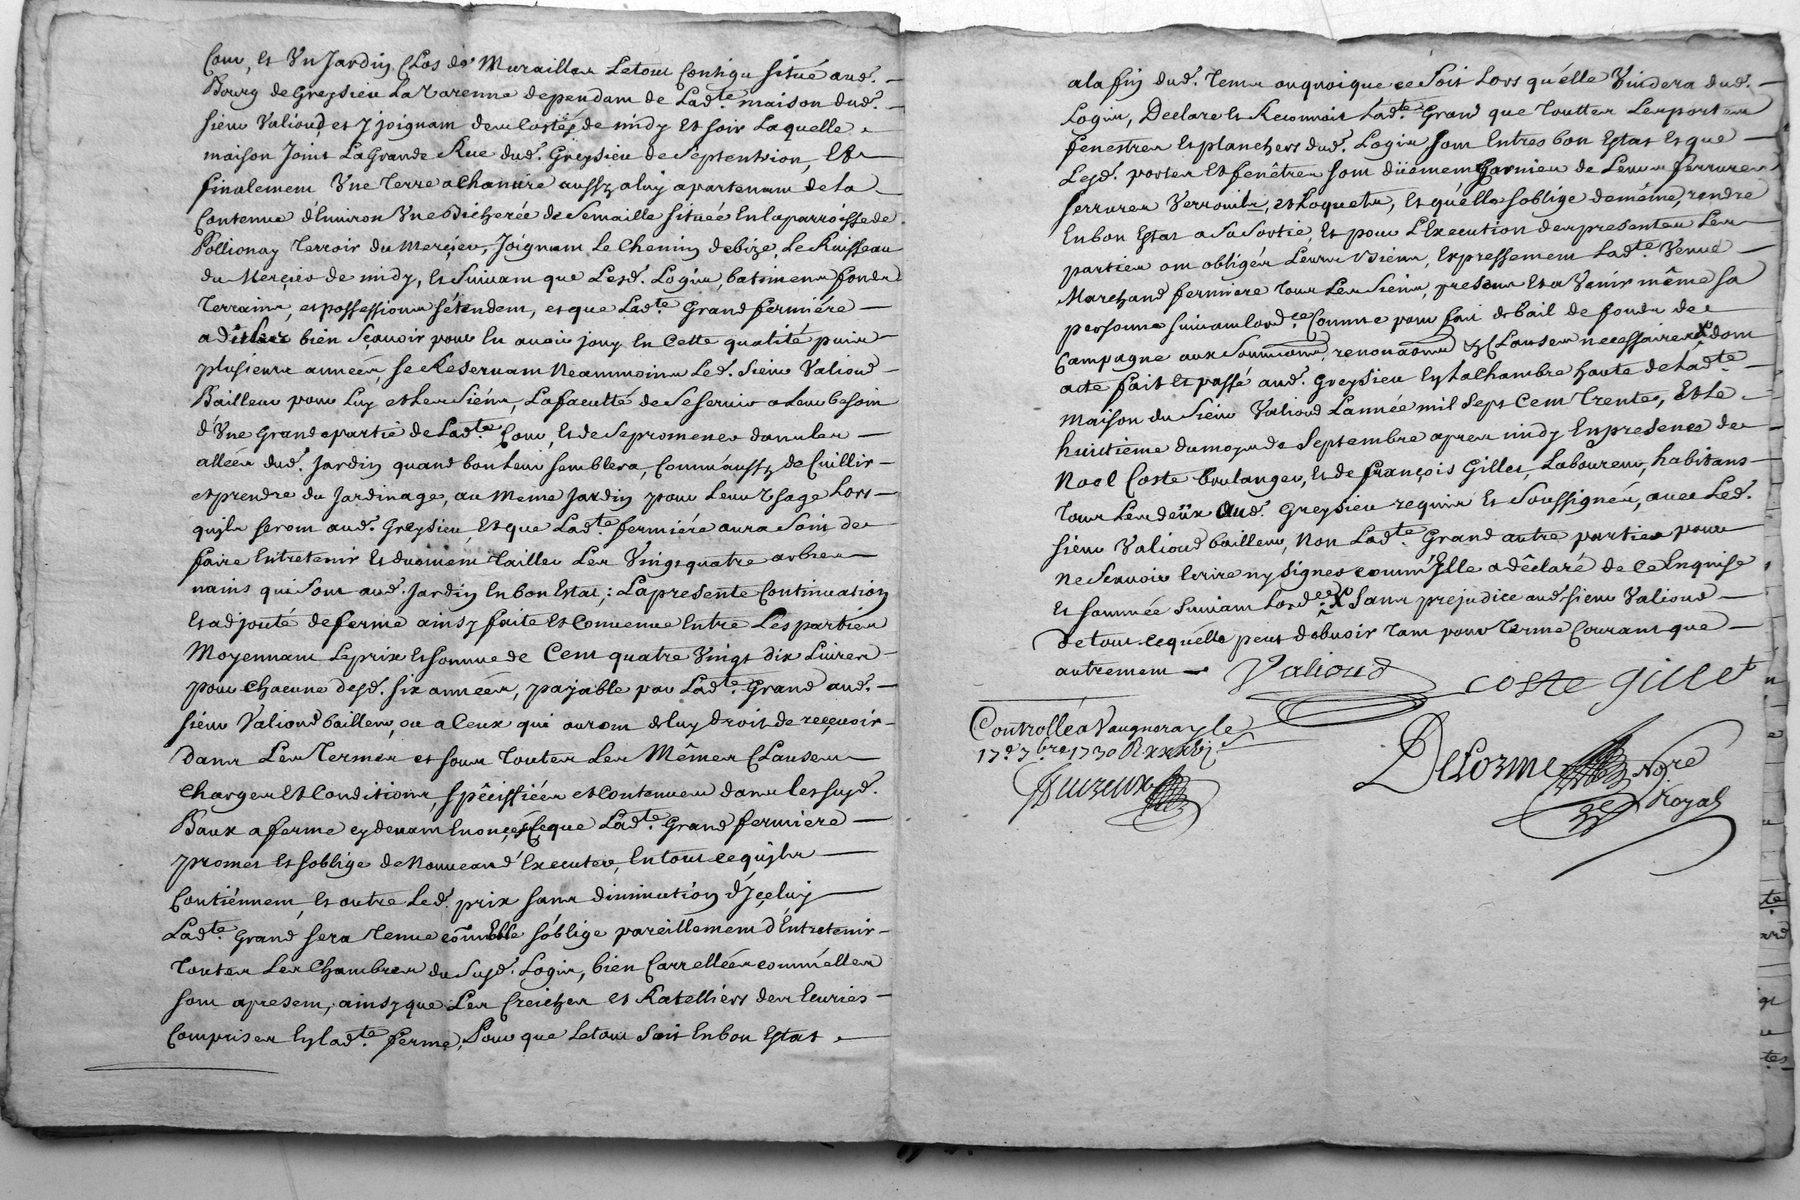 Cour, et Un Jardin Clos de Murailles Letout Contigu situé aud.
Bourg de Greysieu La Varenne dependam de Lad.te maison dud.
sieur Valioud, et y joignam deux Costés de midy et soir Laquelle
maison Joint La Grande Rue dud. Greysieu de Septentrion, Et
finalement Une Terre a chanure aussy a luy apartenam de la
Contenue d'Environ Une Bicherée de Semaille située En la parroisse de
Pollionay Terroir du Merçier, Joignam Le Chemin de bize, Le Ruisseau
du Merçier de midy, et Suivam que Lesd. Logis, batimens fonds
Terrains, et possessions s'étendem, et que Lad.te Grand fermière
a dit bien Sçavoir pour En avoir jouy En Cette qualité puis
plusieurs années, se Reservam Neammoins Led. sieur Valioud
Bailleur pour Luy et Les Siens, La faculté de Se servir a Leur besoin
d'Une Grande partie de Lad.te Cour, et de Se promener dans les
allées dud. Jardin quand bon Leur semblera, Comm'aussy de Cuillir
et prendre du Jardinage, au Meme Jardin pour Leur Usage Lors
qu'ils serom aud. Greysieu, Et que Lad.te fermiére aura Soin de
faire Entretenir Et duëment Tailler Les Vingt quatre arbres
nains qui Sont aud. Jardin En bon Estat; La presente Continuation
Et adjouté de ferme ainsy faite et Convenue Entre Les parties
Moyennam Le prix et somme de Cent quatre Vingt dix Livres
pour Chacune desd. six années, payable par Lad.te Grand aud.
sieur Valioud bailleur, ou a Ceux qui aurom de luy droit de reçevoir
dans Les Termes et sous Toutes Les Mêmes Clauses
Charges Et Conditions, spécifiées et Contenues dans les susd.
Baux a ferme cy devam Enonçés, Ce que Lad.te Grand fermiere
promet Et s'oblige de Nouveau d'Executer, En tout ce qu'ils
Contiennem, et outre Led. prix sans diminution d'Içeluy
Lad.te Grand sera Tenue Comm'Elle s'oblige pareillement d'Entretenir
Toutes Les Chambres du Susd. Logis, bien Carrellées comm'elles
som apresem, ainsy que Les Creiches et Ratelliers des Ecuries
Comprises En lad.te ferme, Pour que Letout Soit En bon Estat
a la fin dud. Terme ou quoique ce Soit Lors qu'elle Vuidera dud.
Logis, Declare Et Reconnoit Lad.te Grand que Touttes Les portes
fenestres Et planchers dud. Logis som En tres bon Estat Et que
Lesd. portes Et fenêtres som duëment Garnies de Leurs ferrures
serrures Verrouils, et Loquets, Et qu'elle s'oblige de même, rendre
En bon Estat a Sa Sortie, Et pour L'Execution des presentes Les
parties om obligés Leurs Biens, Expressement Lad.te Veuve
Marchand fermiere Tous Les Siens, presens Et a Venir même sa
personne suivam Lord.ce Comme pour fait de bail de fonds de
Campagne aux Soumissions, renonaōns & Clauses necessaires dont
acte fait Et passé aud. Greysieu En La Chambre haute de Lad.te
Maison du Sieur Valioud L'année mil Sept Cem Trente, Et Le
huitieme du moys de Septembre apres midy En presence de
Noel Coste boulanger, Et de françois Gillet, Laboureur, habitans
Tous Les deüx aud. Greysieu requis Et Soussignés, avec Led.
sieur Valioud bailleur, Non Lad.te Grand autre partie pour
Ne Scavoir Ecrire ny signer comm'Elle a déclaré de ce Enquise
Et sommée Suivam Lord.ce X Sans prejudice aud. sieur Valioud
De tout ce qu'elle peut debvoir Tam pour Terme Courant que
autrement
Valioud
Coste Gillet
Controllé a Vaugneray le
17.e 7bre 1730
Delorme No.re
Royal